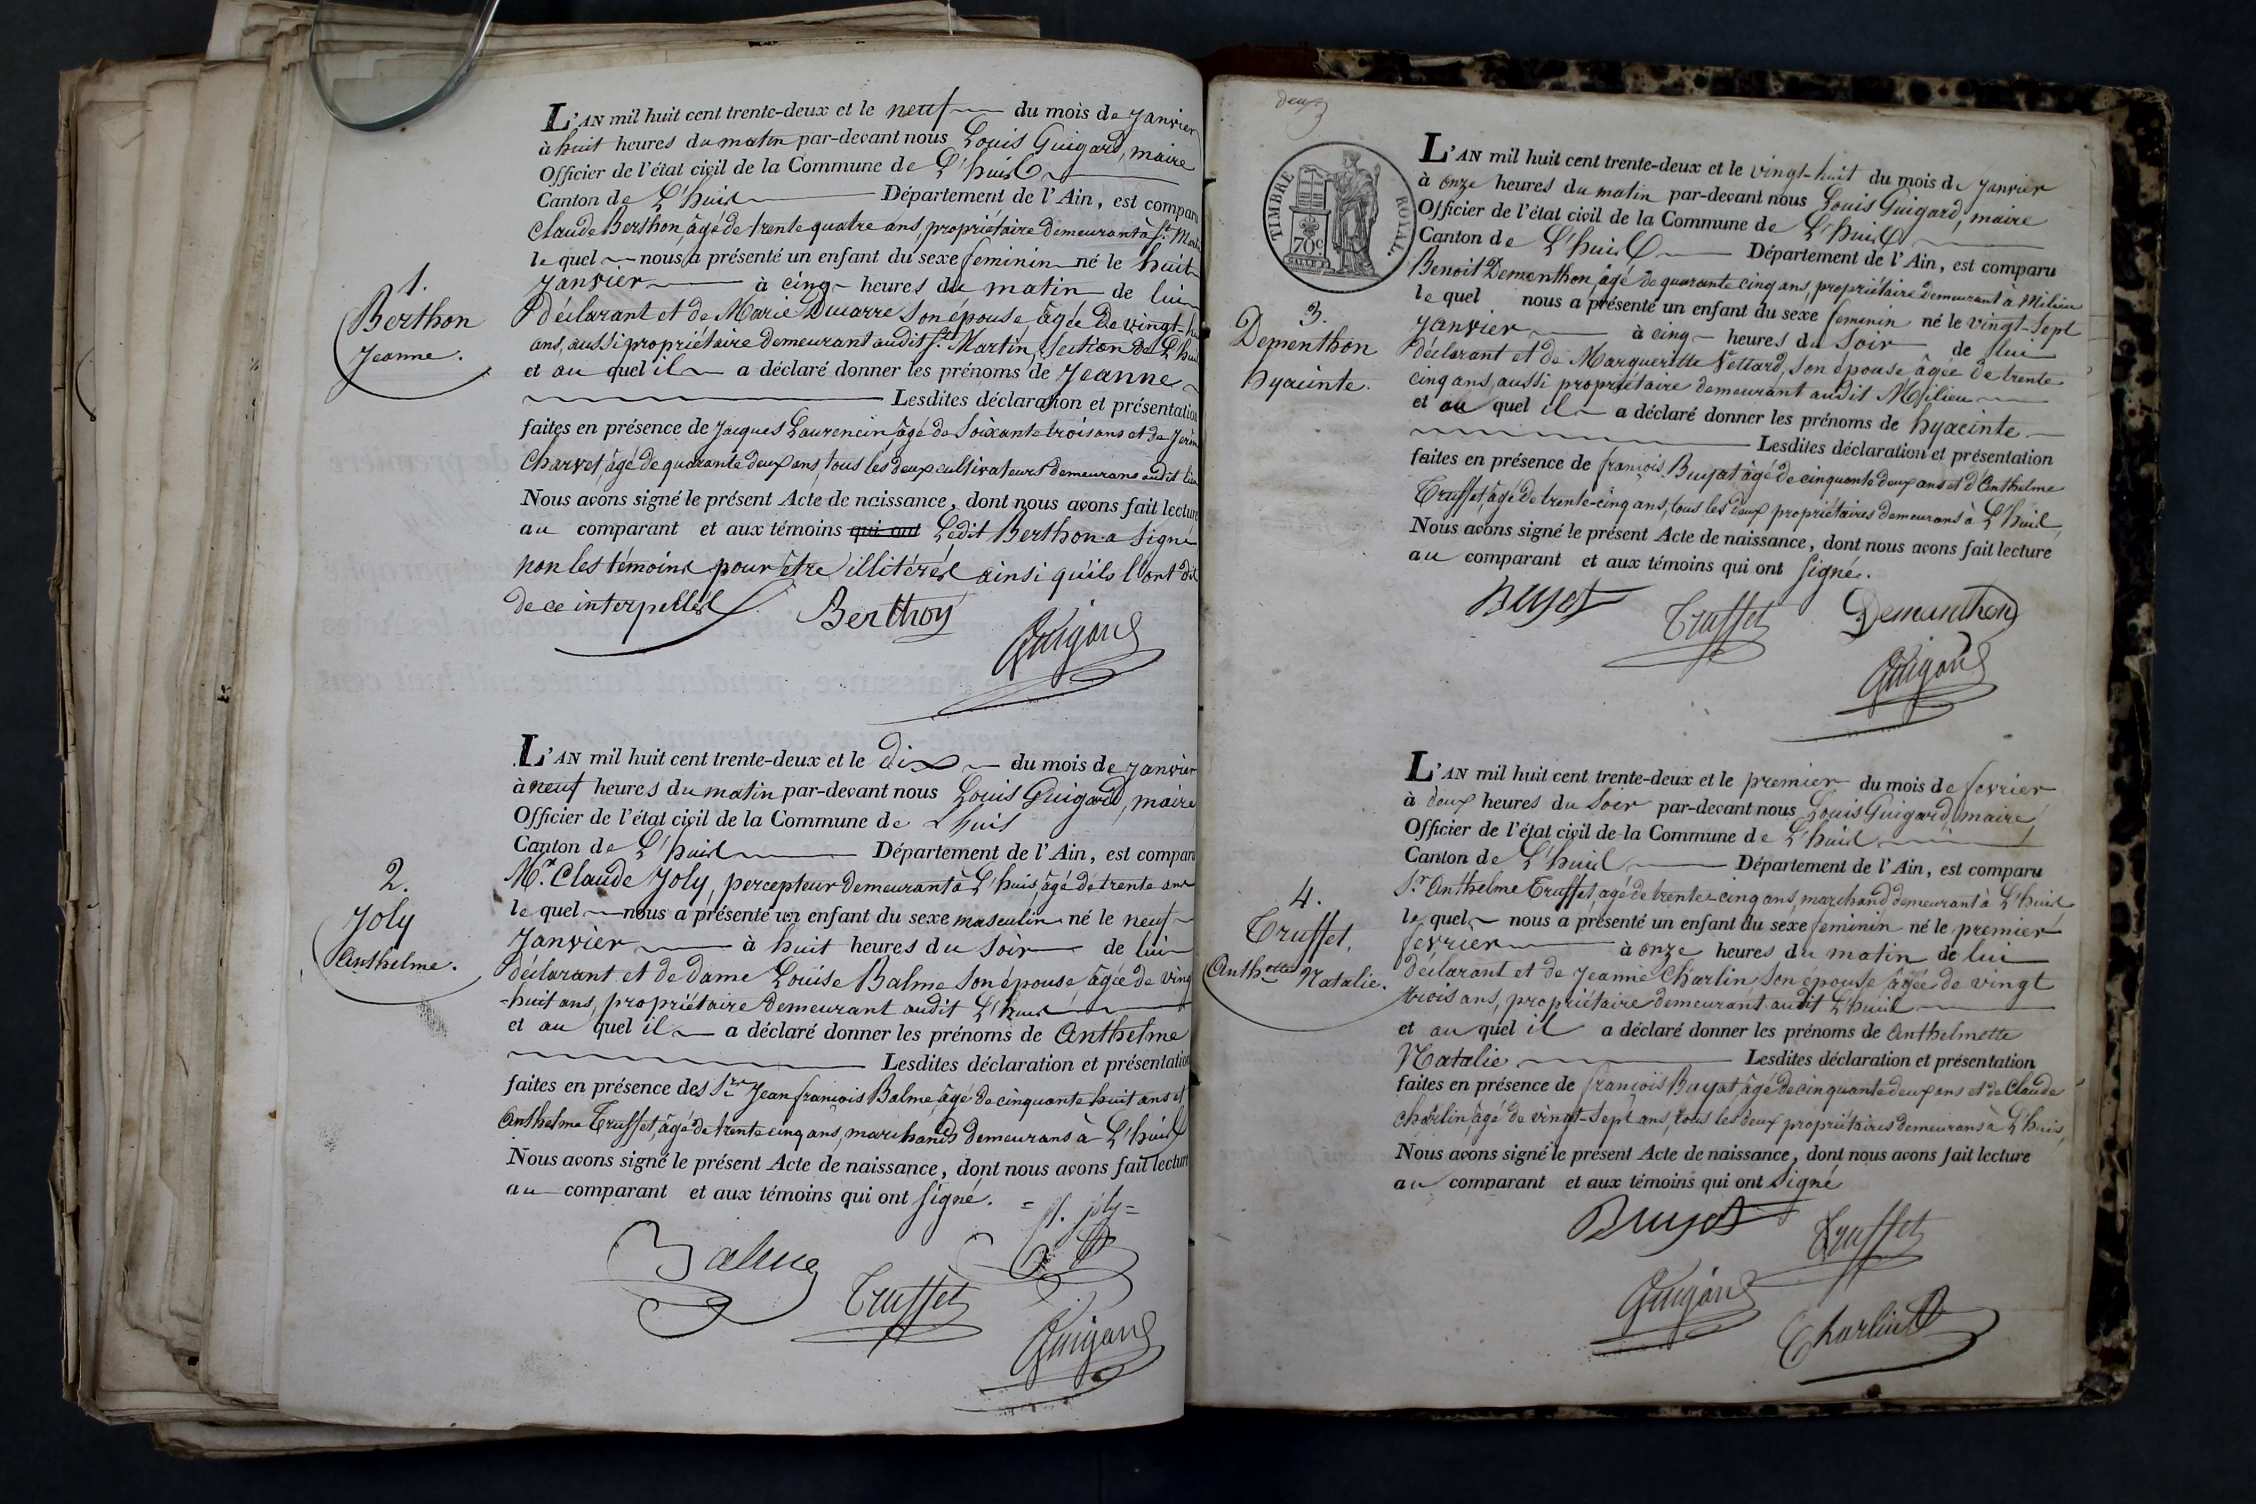 L'AN mil huit cent trente-deux et le neuf du mois de Janvier
à huit heures du matin par-devant nous Louis Guigard, maire
Officier de l'état civil de la Commune de L'huis
Canton de L'huis Département de l'Ain, est comparu
Claude Berthon, âgé de trente quatre ans, propriétaire demeurant à St. Martin
le quel nous a présenté un enfant du sexe feminin né le huit
Janvier à cinq heures du matin de lui
déclarant et de Marie Ducarre son épouse, âgée de vingt-
ans, aussi propriétaire demeurant audit St. Martin, section de L'huis
et au quel il a déclaré donner les prénoms de Jeanne
Lesdites déclaration et présentation
faites en présence de Jacques Laurencin, âgé de soixante trois ans et de
Charvet, âgé de quarante deux ans, tous les deux cultivateurs demeurans audit lieu
Nous avons signé le présent Acte de naissance, dont nous avons fait lecture
au comparant et aux témoins qui ont Ledit Berthon a signé
non les témoins pour être illitérés ainsi qu'ils l'ont dit
de ce interpellés
Berthon
Guigard
1.
Berthon
Jeanne.
L'AN mil huit cent trente-deux et le dix du mois de Janvier
à neuf heures du matin par-devant nous Louis Guigard, maire
Officier de l'état civil de la Commune de L'huis
Canton de L'huis Département de l'Ain, est comparu
Mr. Claude Joly, percepteur demeurant à L'huis, âgé de trente ans
le quel nous a présenté un enfant du sexe masculin né le neuf
Janvier à huit heures du soir de lui
déclarant et de dame Louise Balme son épouse âgée de vingt
-huit ans, propriétaire demeurant audit L'huis
et au quel il a déclaré donner les prénoms de Anthelme
Lesdites déclaration et présentation
faites en présence des Srs Jean françois Balme, âgé de cinquante huit ans et
Anthelme Truffet, âgé de trente cinq ans, marchands demeurans à L'huis
Nous avons signé le présent Acte de naissance, dont nous avons fait lecture
au comparant et aux témoins qui ont signé.
joly
Balme
Truffet
Guigard
2.
Joly
Anthelme.
deux
TIMBRE ROYAL.
70c
L'AN mil huit cent trente-deux et le vingt-huit du mois de Janvier
à onze heures du matin par-devant nous Louis Guigard, maire
Officier de l'état civil de la Commune de L'huis
Canton de L'huis Département de l'Ain, est comparu
Benoit Dementhon, âgé de quarante cinq ans, propriétaire demeurant à Milieu
le quel nous a présenté un enfant du sexe femenin né le vingt-sept
Janvier à cinq heures du soir de lui
déclarant et de Margueritte Vettard, son épouse âgée de trente
cinq ans, aussi propriétaire demeurant audit Milieu
et au quel il a déclaré donner les prénoms de hyacinte
Lesdites déclaration et présentation
faites en présence de françois Buyat, âgé de cinquante deux ans et d'Anthelme
Truffet, âgé de trente-cinq ans, tous les deux propriétaires demeurans à L'huis,
Nous avons signé le présent Acte de naissance, dont nous avons fait lecture
au comparant et aux témoins qui ont signé.
Buyat
Truffet
Dementhon
Guigard
3.
Dementhon
hyacinte.
L'AN mil huit cent trente-deux et le premier du mois de fevrier
à deux heures du soir par-devant nous Louis Guigard, maire,
Officier de l'état civil de la Commune de L'huis
Canton de L'huis Département de l'Ain, est comparu
Sr Anthelme Truffet, agé de trente-cinq ans, marchand demeurant à L'huis
le quel nous a présenté un enfant du sexe feminin né le premier
fevrier à onze heures du matin de lui
déclarant et de Jeanne Charlin son épouse âgée de vingt
trois ans, propriétaire demeurant audit L'huis
et au quel il a déclaré donner les prénoms de Anthelmette
Natalie Lesdites déclaration et présentation
faites en présence de françois Buyat, âgé de cinquante deux ans et de Claude
Charlin, âgé de vingt-sept ans, tous les deux propriétaires demeurans à L'huis,
Nous avons signé le présent Acte de naissance, dont nous avons fait lecture
au comparant et aux témoins qui ont signé
Buyat
Truffet
Guigard
Charlin
4.
Truffet,
Anth.ette Natalie.